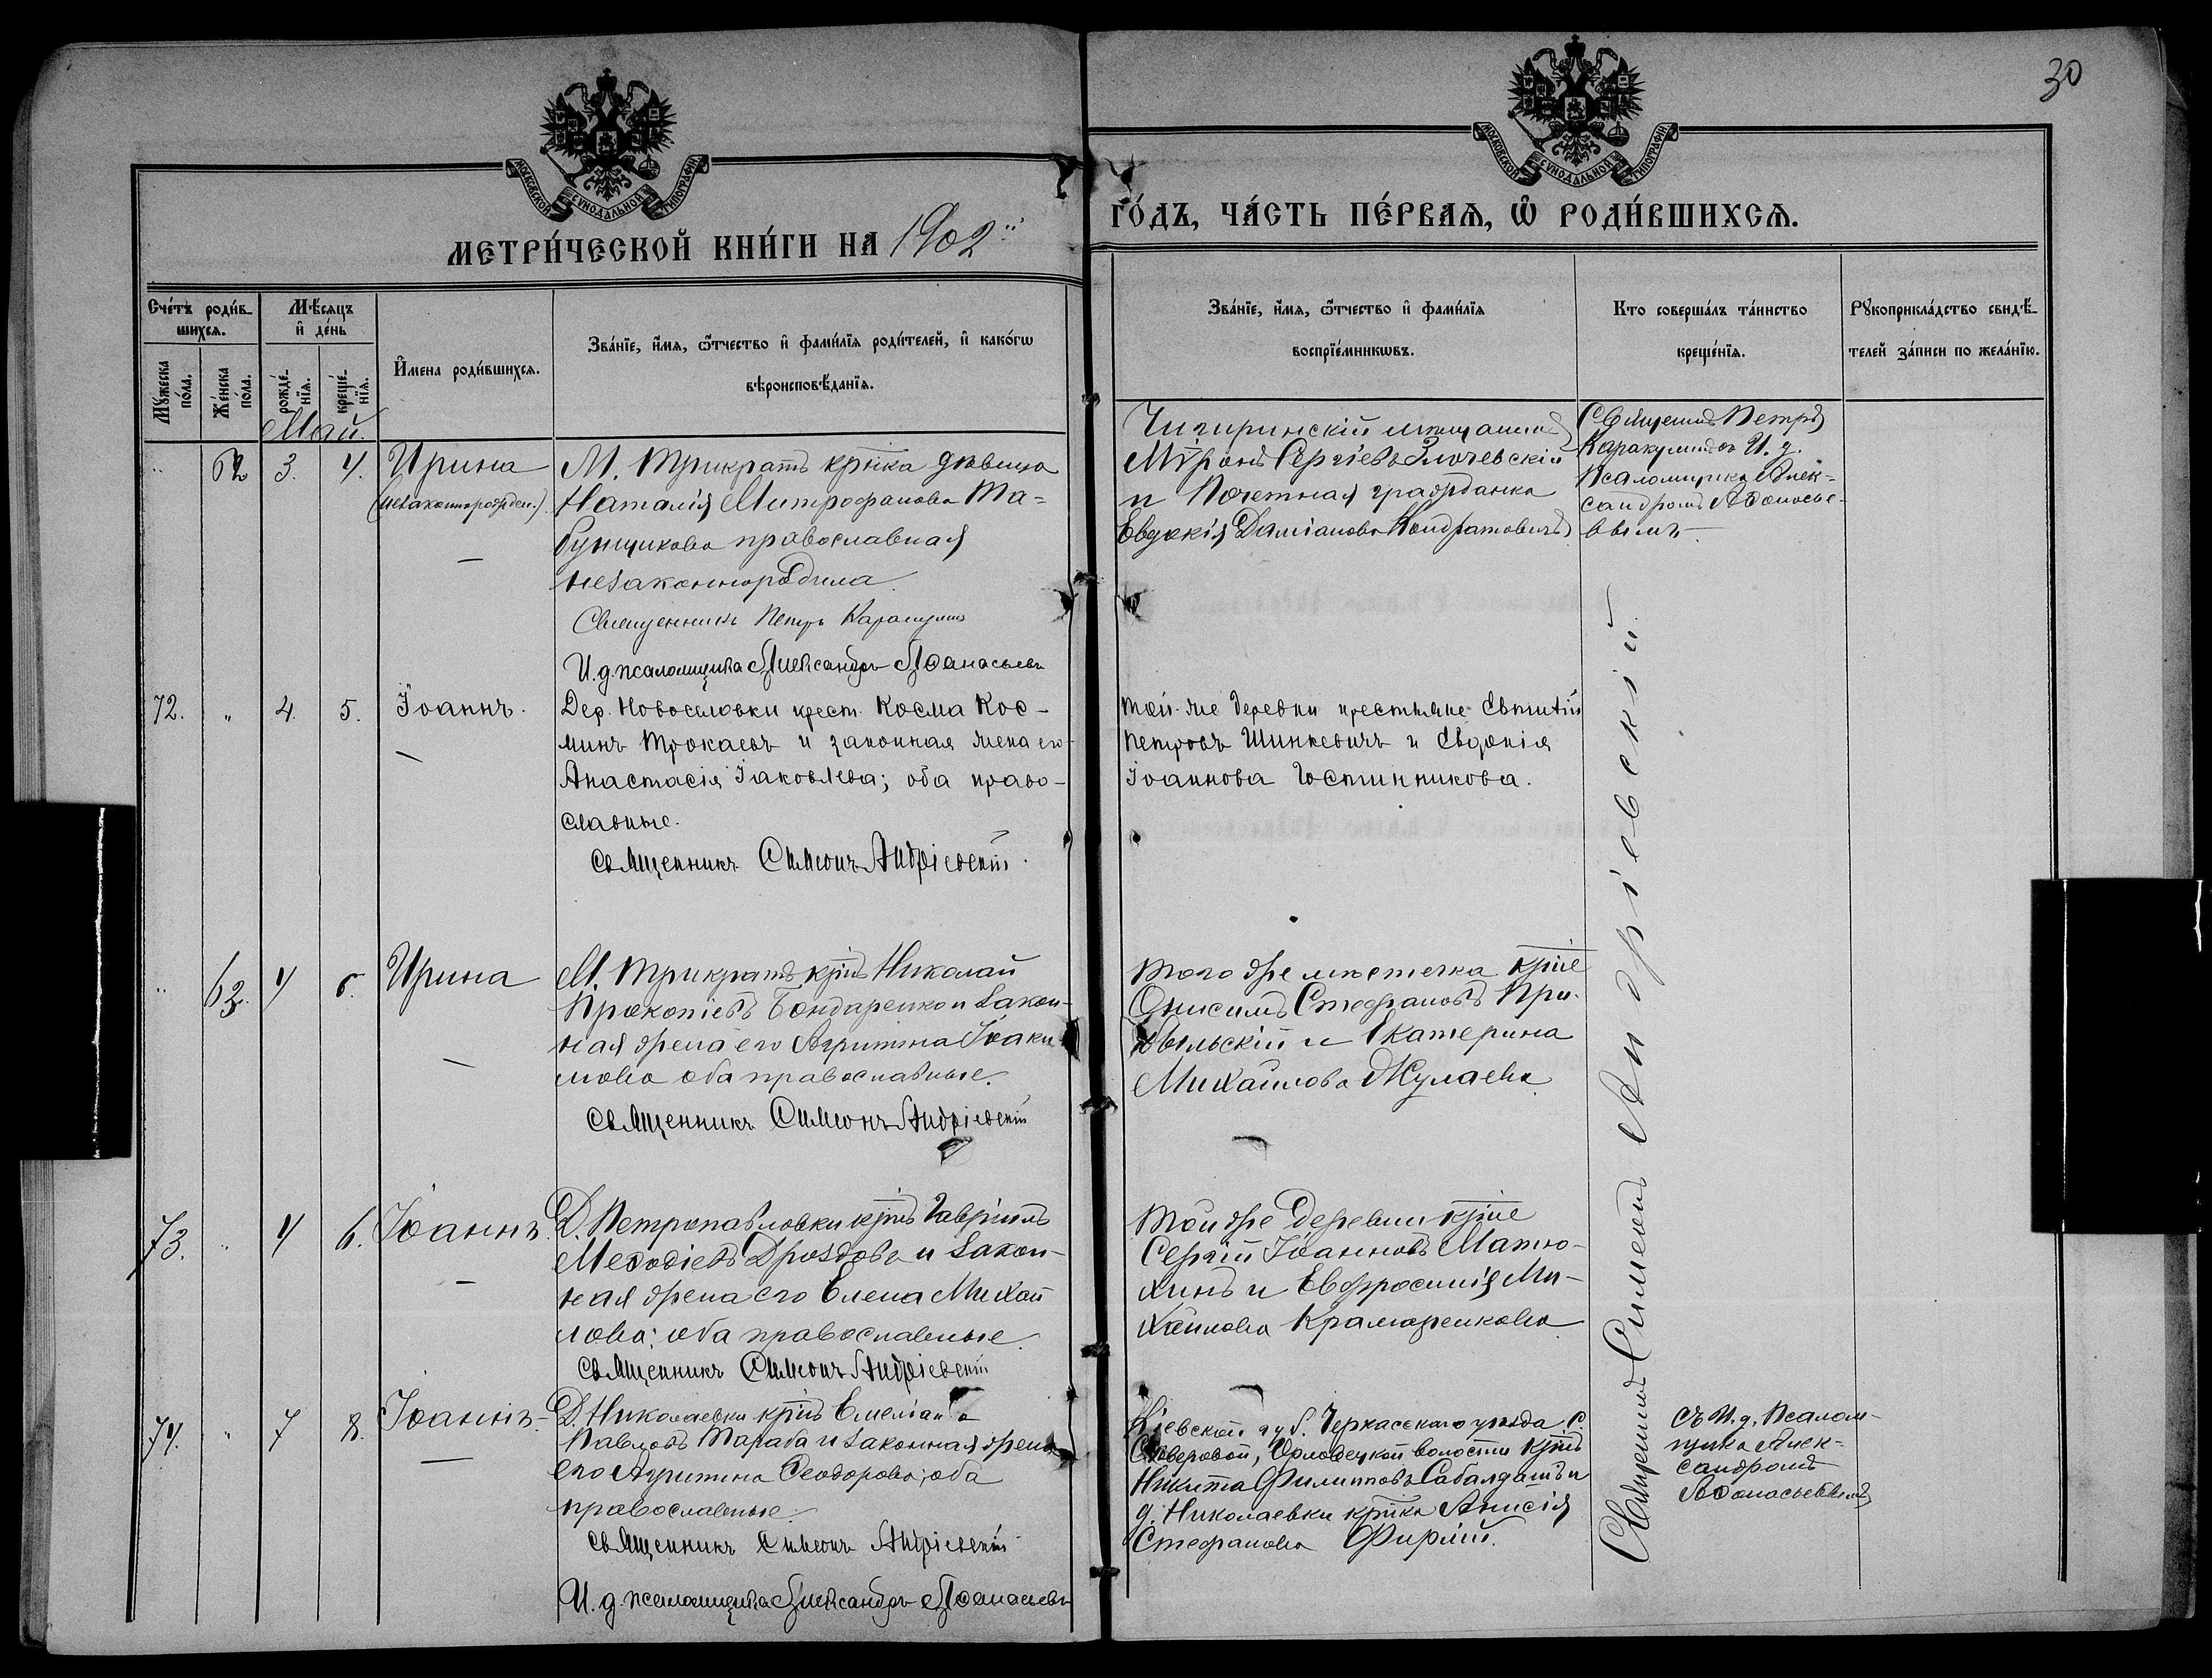 30
МОСКОВСКОЙ СѴНОДАЛЬНОЙ ТИПОГРАФІИ
МОСКОВСКОЙ СѴНОДАЛЬНОЙ ТИПОГРАФІИ
МЕТРИ́ЧЕСКОЙ КНИ́ГИ НА 1902й
ГО́ДЪ, ЧА́СТЬ ПЕ́РВАѦ, Ѿ РОДИ́ВШИХСѦ.
Сче́тъ роди́в-
шихсѧ.
Мꙋ́жеска по́ла.
Же́нска по́ла.
Мѣ́сѧцъ
и҆ де́нь
рожде́-
нїѧ.
креще́-
нїѧ.
И҆мена роди́вшихсѧ.
Зва́нїе, и҆́мѧ, ѻ҆́тчество и҆ фами́лїѧ роди́телей, и҆ како́гѡ
вѣроисповѣ́данїѧ.
Зва́нїе, и҆́мѧ, ѻ҆́тчество и҆ фами́лїѧ
воспрїе́мникѡвъ.
Кто соверша́лъ та́инство
креще́нїѧ.
Рꙋкоприкла́дство свидѣ́-
телей за́писи по жела́нїю.
Май.
" 62 3. 4. Ирина
(незаконнорожден.)
М. Трикратъ крт̃ка дѣвица
Наталія Митрофанова Та-
бунщикова православная
незаконнородила
Священникъ Петръ Каракулинъ
И.д. псаломщика Александръ Аѳанасьевъ
Чигиринскій мѣщанинъ
Міронъ Сергіевъ Злочевскій
и Почетная гражданка
Евдокія Даміанова Кондратовичъ
Священ. Петръ
Каракулинъ съ И. д.
Псаломщика Алек-
сандромъ Аѳанасье-
вымъ
72. " 4. 5. Іоаннъ.
Дер. Новоселовки крест. Косма Кос-
минъ Трокаевъ и законная жена его
Анастасія Іаковлева; оба право-
славные.
Священникъ Симеонъ Андріевскій
той-же деревни крестьяне Евтихій
Петровъ Шинкевичъ и Евдокія
Іоаннова Гостинникова.
" 63. 4 5. Ирина
М. Трикратъ крт̃ъ Николай
Прокопіевъ Бондаренко и Закон-
ная жена его Агрипина Іоаки-
мова оба православные.
Священникъ Симеонъ Андріевскій
того же мѣстечка крт̃е
Онисимъ Стефановъ При-
быльскій и Екатерина
Михайлова Жулаева
73. " 4 6. Іоаннъ.
Д. Петропавловки крт̃ъ Гавріилъ
Меѳодіевъ Дроздовъ и Закон-
ная жена его Елена Михай
лова; оба православные.
Священникъ Симеонъ Андріевскій
той же деревни крт̃е
Сергій Іоанновъ Матю-
хинъ и Евфросинія Ми-
хайлова Крамаренкова
74. " 7 8. Іоаннъ.
Д. Николаевки крт̃ъ Емеліанъ
Павловъ Тараба и законная жена
его Агрипина Ѳеодорова; оба
православные.
Священникъ Симеонъ Андріевскій
И. д. псаломщика Александръ Аѳанасьевъ
Кіевской губ. Черкасскаго уѣзда с.
волости крт̃ъ
Никита Филипповъ Сабалдашъ и
д. Николаевки крт̃ка Анисія
Стефанова
Священникъ Симеонъ Андріевскій
съ И. д. Псалом-
щика Алек-
сандромъ
Аѳанасьевымъ